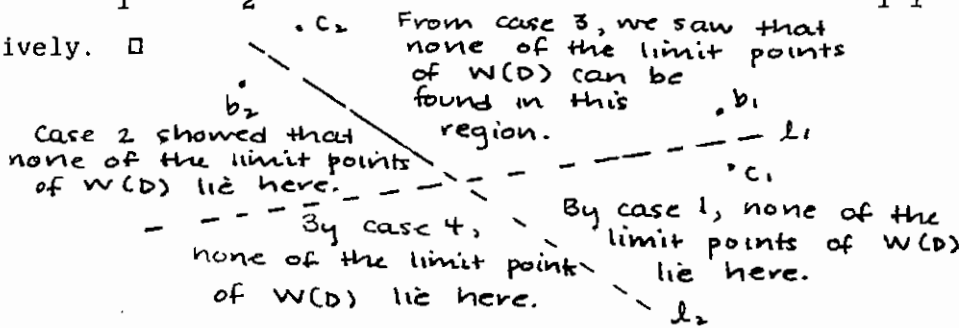 1 2 1 1
ively. □
. c₂
From case 3, we saw that
none of the limit points
of W(D) can be
found in this
region.
b₂
. b₁
l₁
Case 2 showed that
none of the limit points
of W(D) lie here.
. c₁
By case 4,
none of the limit points
of W(D) lie here.
By case 1, none of the
limit points of W(D)
lie here.
l₂